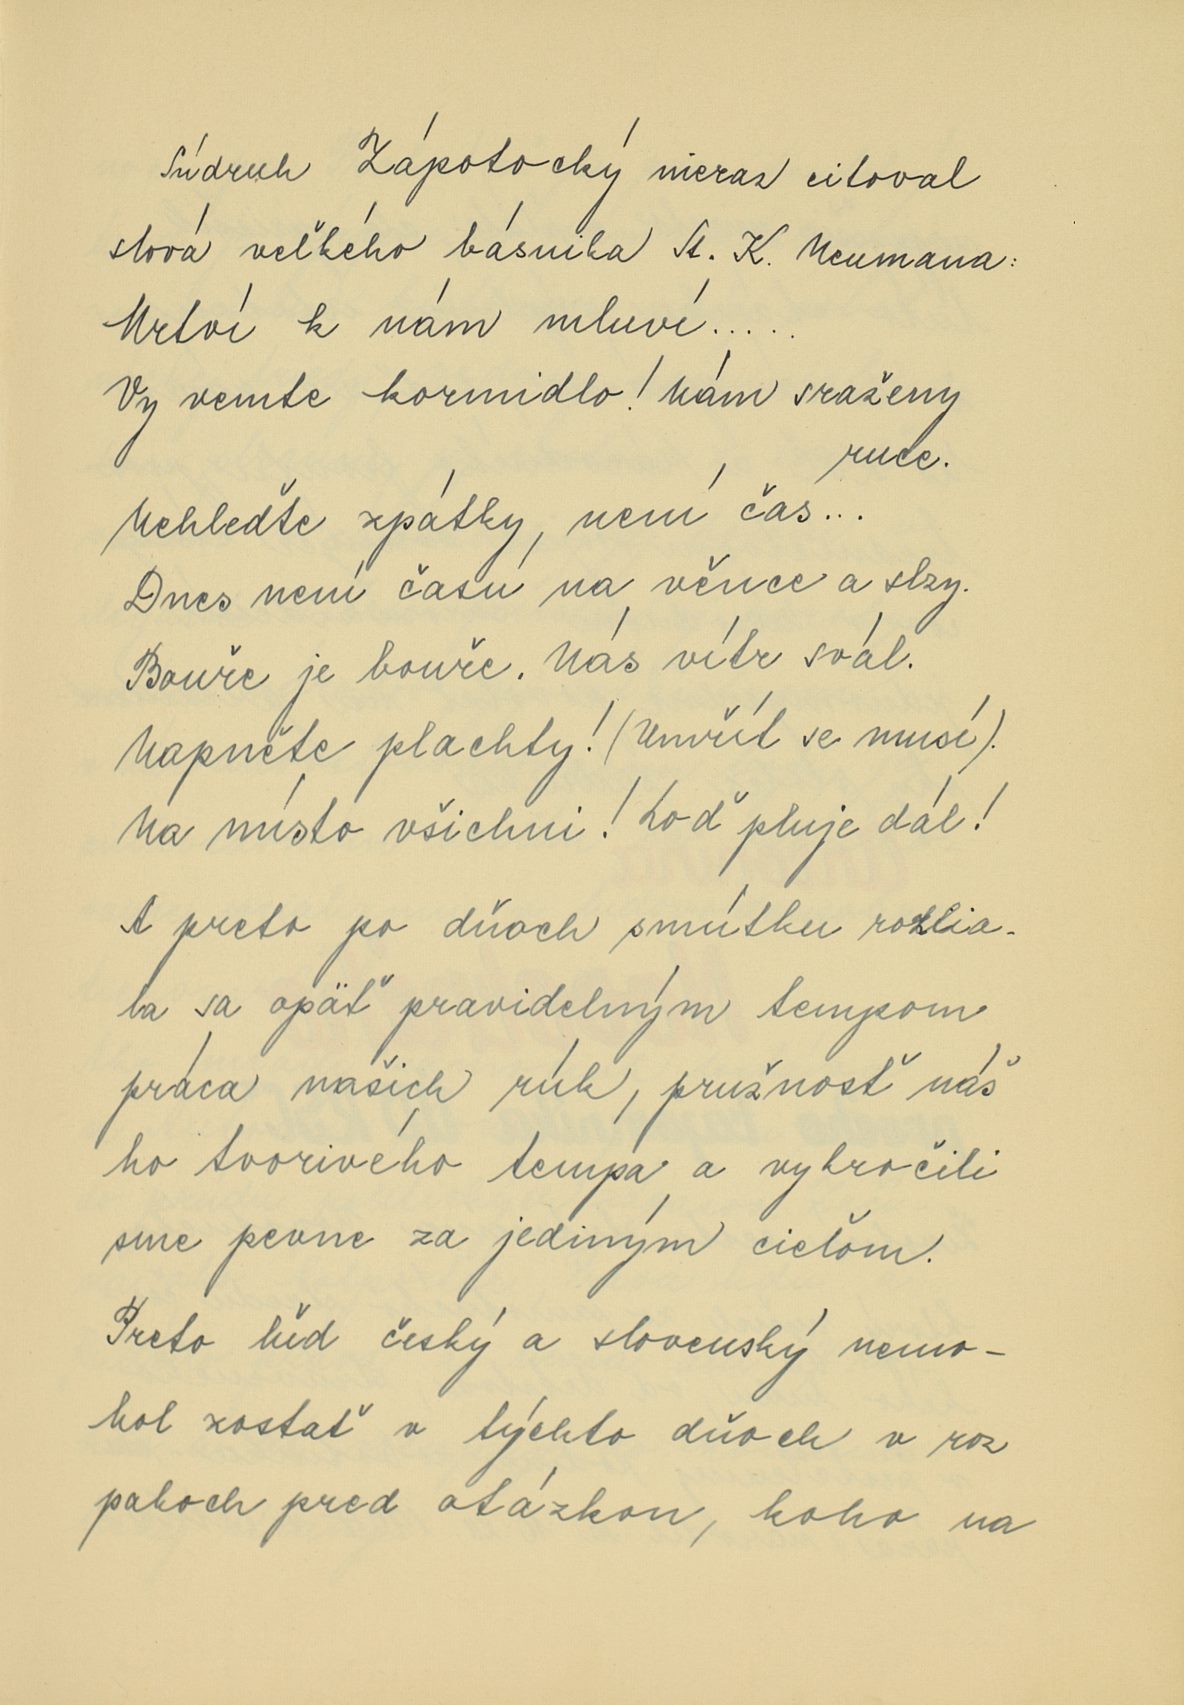 Súdruh Zápotocký nieraz citoval
slová veľkého básnika St. K. Neumana:
Mrtví k nám mluví.....
Vy vemte kormidlo! Nám sraženy
ruce.
Nehleďte zpátky, není čas...
Dnes není časú na věnce a slzy.
Bouře je bouře. Nás vítr svál.
Napněte plachty! (Umřít se musí).
Na místo všichni! Loď pluje dál!
A preto po dňoch smútku rozlia-
la sa opäť pravidelným tempom
práca našich rúk, pružnosť náš
ho tvorivého tempa a vykročili
sme pevne za jediným cieľom.
Preto ľud český a slovenský nemo-
hol zostať v týchto dňoch v roz
pakoch pred otázkou, koho na